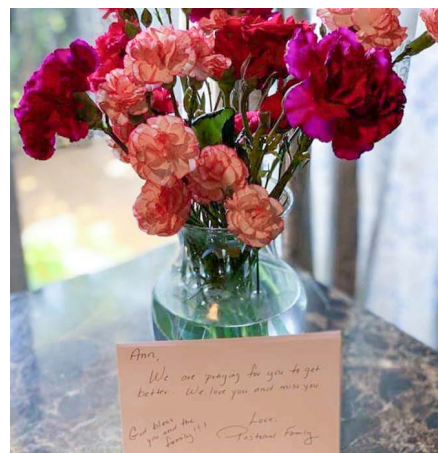 Ann,
We are praying for you to get
better. We love you and miss you
God bless
you and the
family!!
Love,
Family